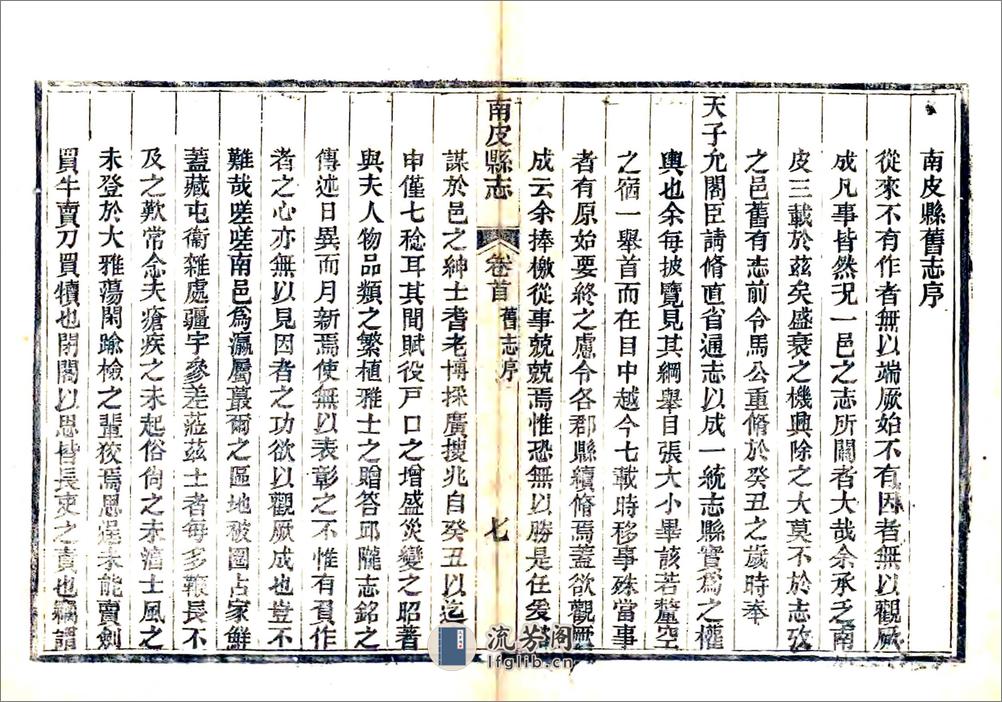 南皮縣舊志序
從來不有作者無以端厥始不有因者無以觀厥
成凡事皆然况一邑之志所關者大哉余承乏南
皮三載於茲矣盛衰之機興除之大莫不於志攷
之邑舊有志前令馬公重脩於癸丑之歲時奉
天子允閣臣請脩直省通志以成一統志縣實爲之權
輿也余每披覽見其綱舉目張大小畢該若釐空
之宿一舉首而在目中越今七載時移事殊當事
者有原始要終之慮令各郡縣續脩焉蓋欲觀厥
成云余捧檄從事兢兢焉惟恐無以勝是任爰
謀於邑之紳士耆老博採廣搜兆自癸丑以迄
申僅七稔耳其間賦役戸口之增盛災變之昭著
與夫人物品類之繁植雅士之贈答邱隴志銘之
傳述日異而月新焉使無以表彰之不惟有負作
者之心亦無以見因者之功欲以觀厥成也豈不
難哉嗟嗟南邑爲瀛屬蕞爾之區地被圈占家鮮
蓋藏屯衞雜處疆宇參差蒞茲土者每多鞭長不
及之歎常念夫瘡疾之未起俗尙之未湻士風之
未登於大雅蕩閑踰檢之輩狡焉思逞未能賣劍
買牛賣刀買犢也閉閤以思皆長吏之責也竊謂
南皮縣志
卷首
舊志序
七
流芳閣
lfglib.cn